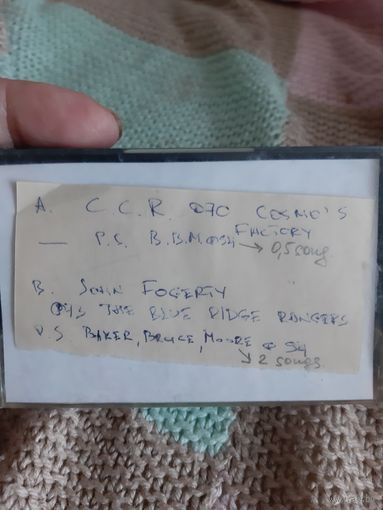 A. C.C.R. @70 COSMO'S
FACTORY
— P.S. B.B.M @94 → 0,5 song
B. JOHN FOGERTY
@73 THE BLUE RIDGE RANGERS
P.S. BAKER, BRUCE, MOORE @ 94
↘ 2 songs